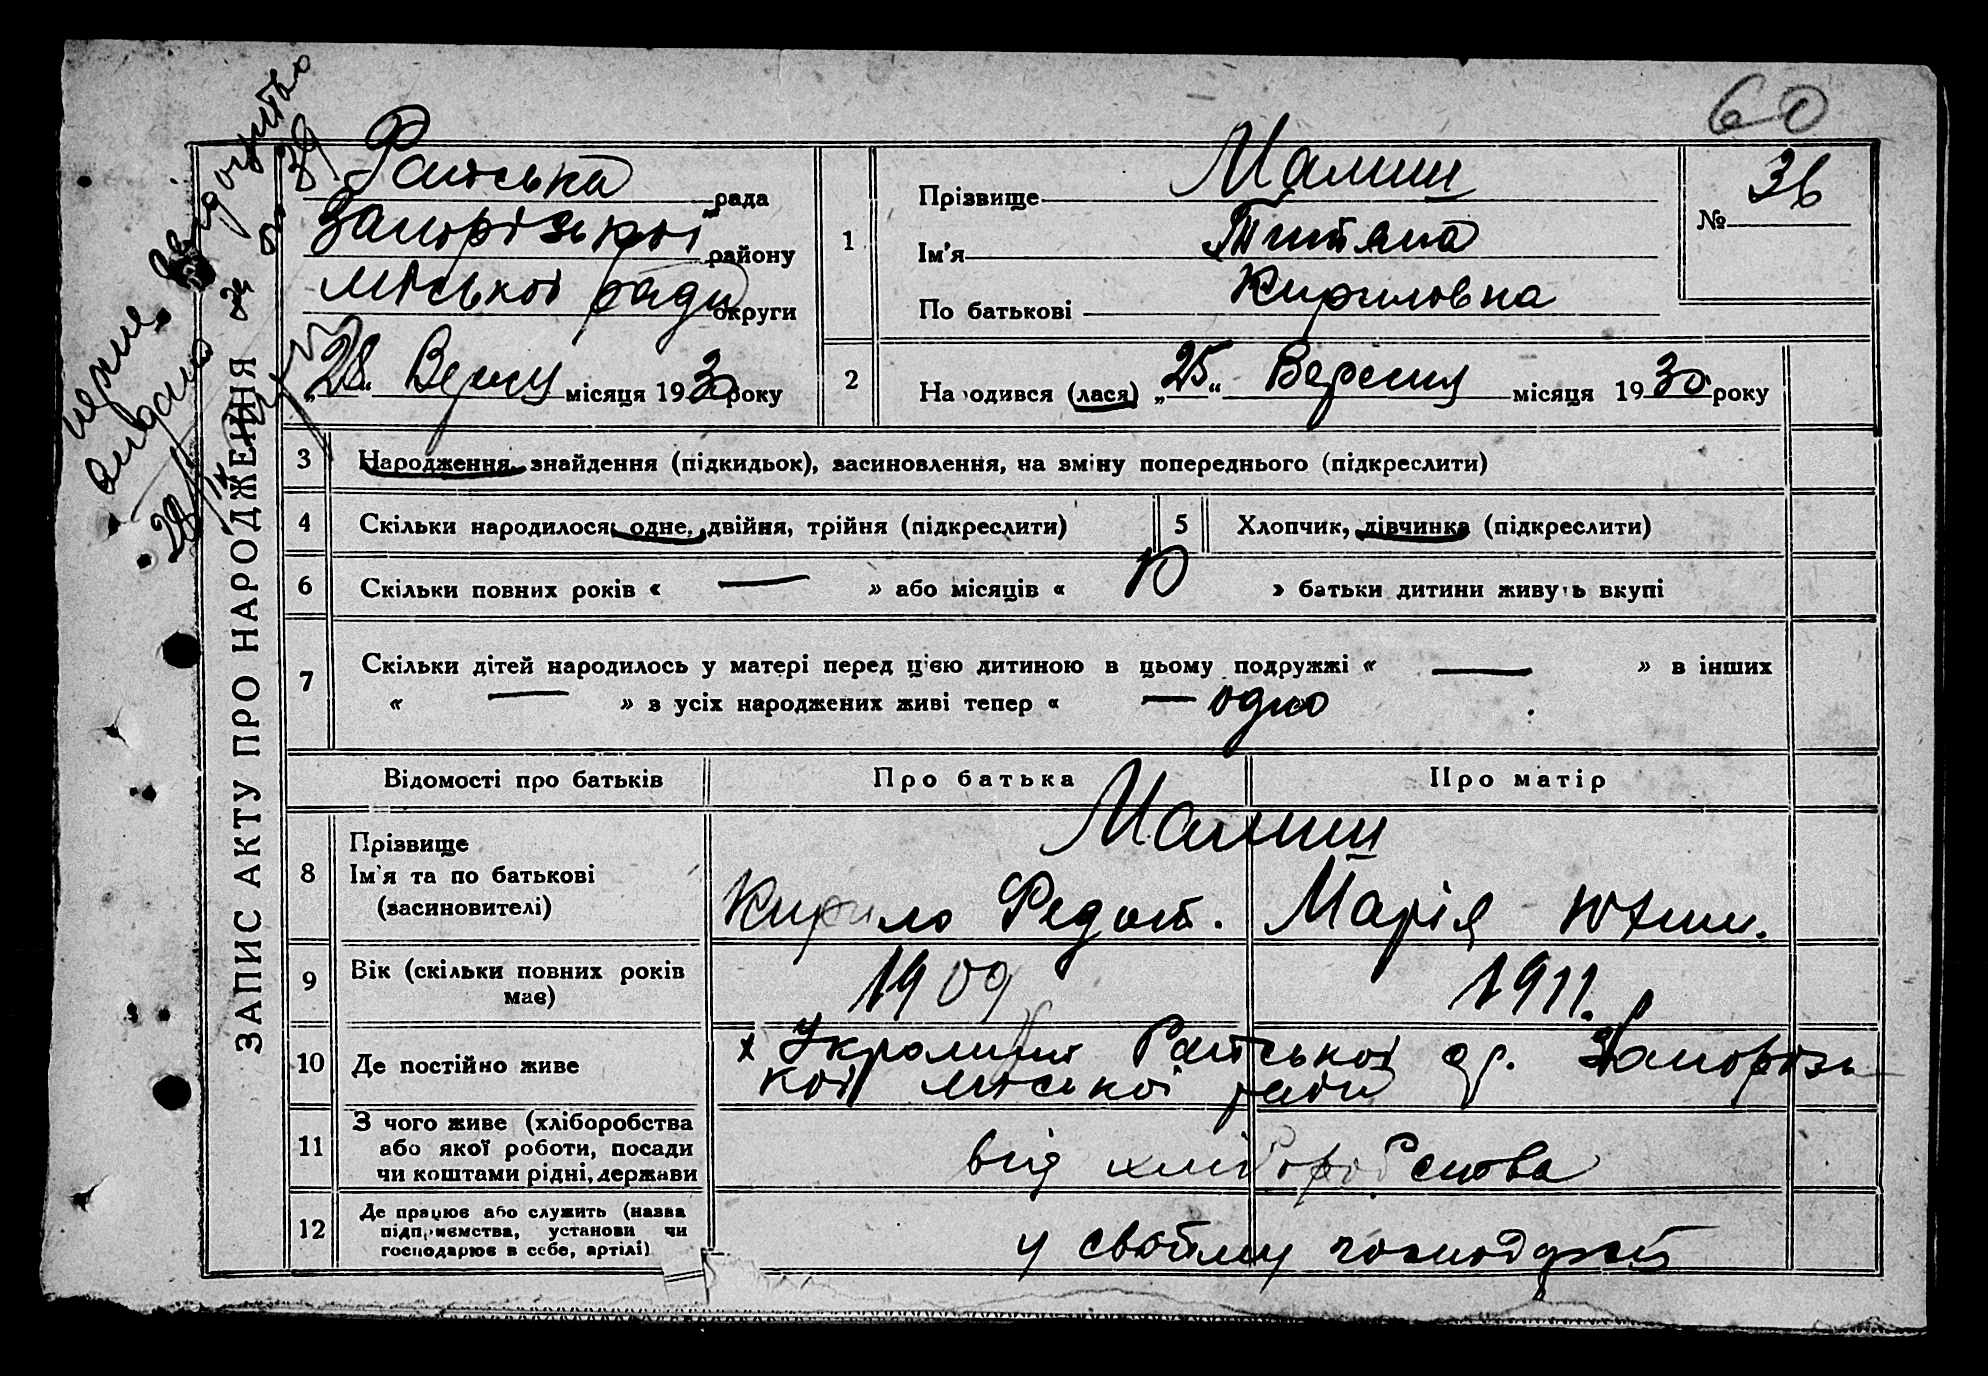 60
рада
Запорізької району
міської ради округи
„28“ Вересн місяця 1930 року
1
Прізвище Малиш
Ім'я Титяна
По батькові Кириловна
№ 36
2
Народився (лася) „25“ Вересня місяця 1930 року
ЗАПИС АКТУ ПРО НАРОДЖЕННЯ
3 Народження, знайдення (підкидьок), засиновлення, на зміну попереднього (підкреслити)
4 Скільки народилося: одне, двійня, трійня (підкреслити)
5 Хлопчик, дівчинка (підкреслити)
6 Скільки повних років « — » або місяців « 10 » батьки дитини живуть вкупі
7 Скільки дітей народилось у матері перед цією дитиною в цьому подружжі « — » в інших
« — » з усіх народжених живі тепер « — одно
Відомості про батьків Про батька Про матір
8 Прізвище
Ім'я та по батькові
(засиновителі)
Малиш
Кирило Федот. Марія Юхим.
9 Вік (скільки повних років
має)
1909 1911.
10 Де постійно живе
х. Запорізь
кої міської ради
11 З чого живе (хліборобства
або якої роботи, посади
чи коштами рідні, держави
від хліборобства
12 Де працює або служить (назва
підприємства, установи чи
господарює в себе, артілі)
у своїму господарстві